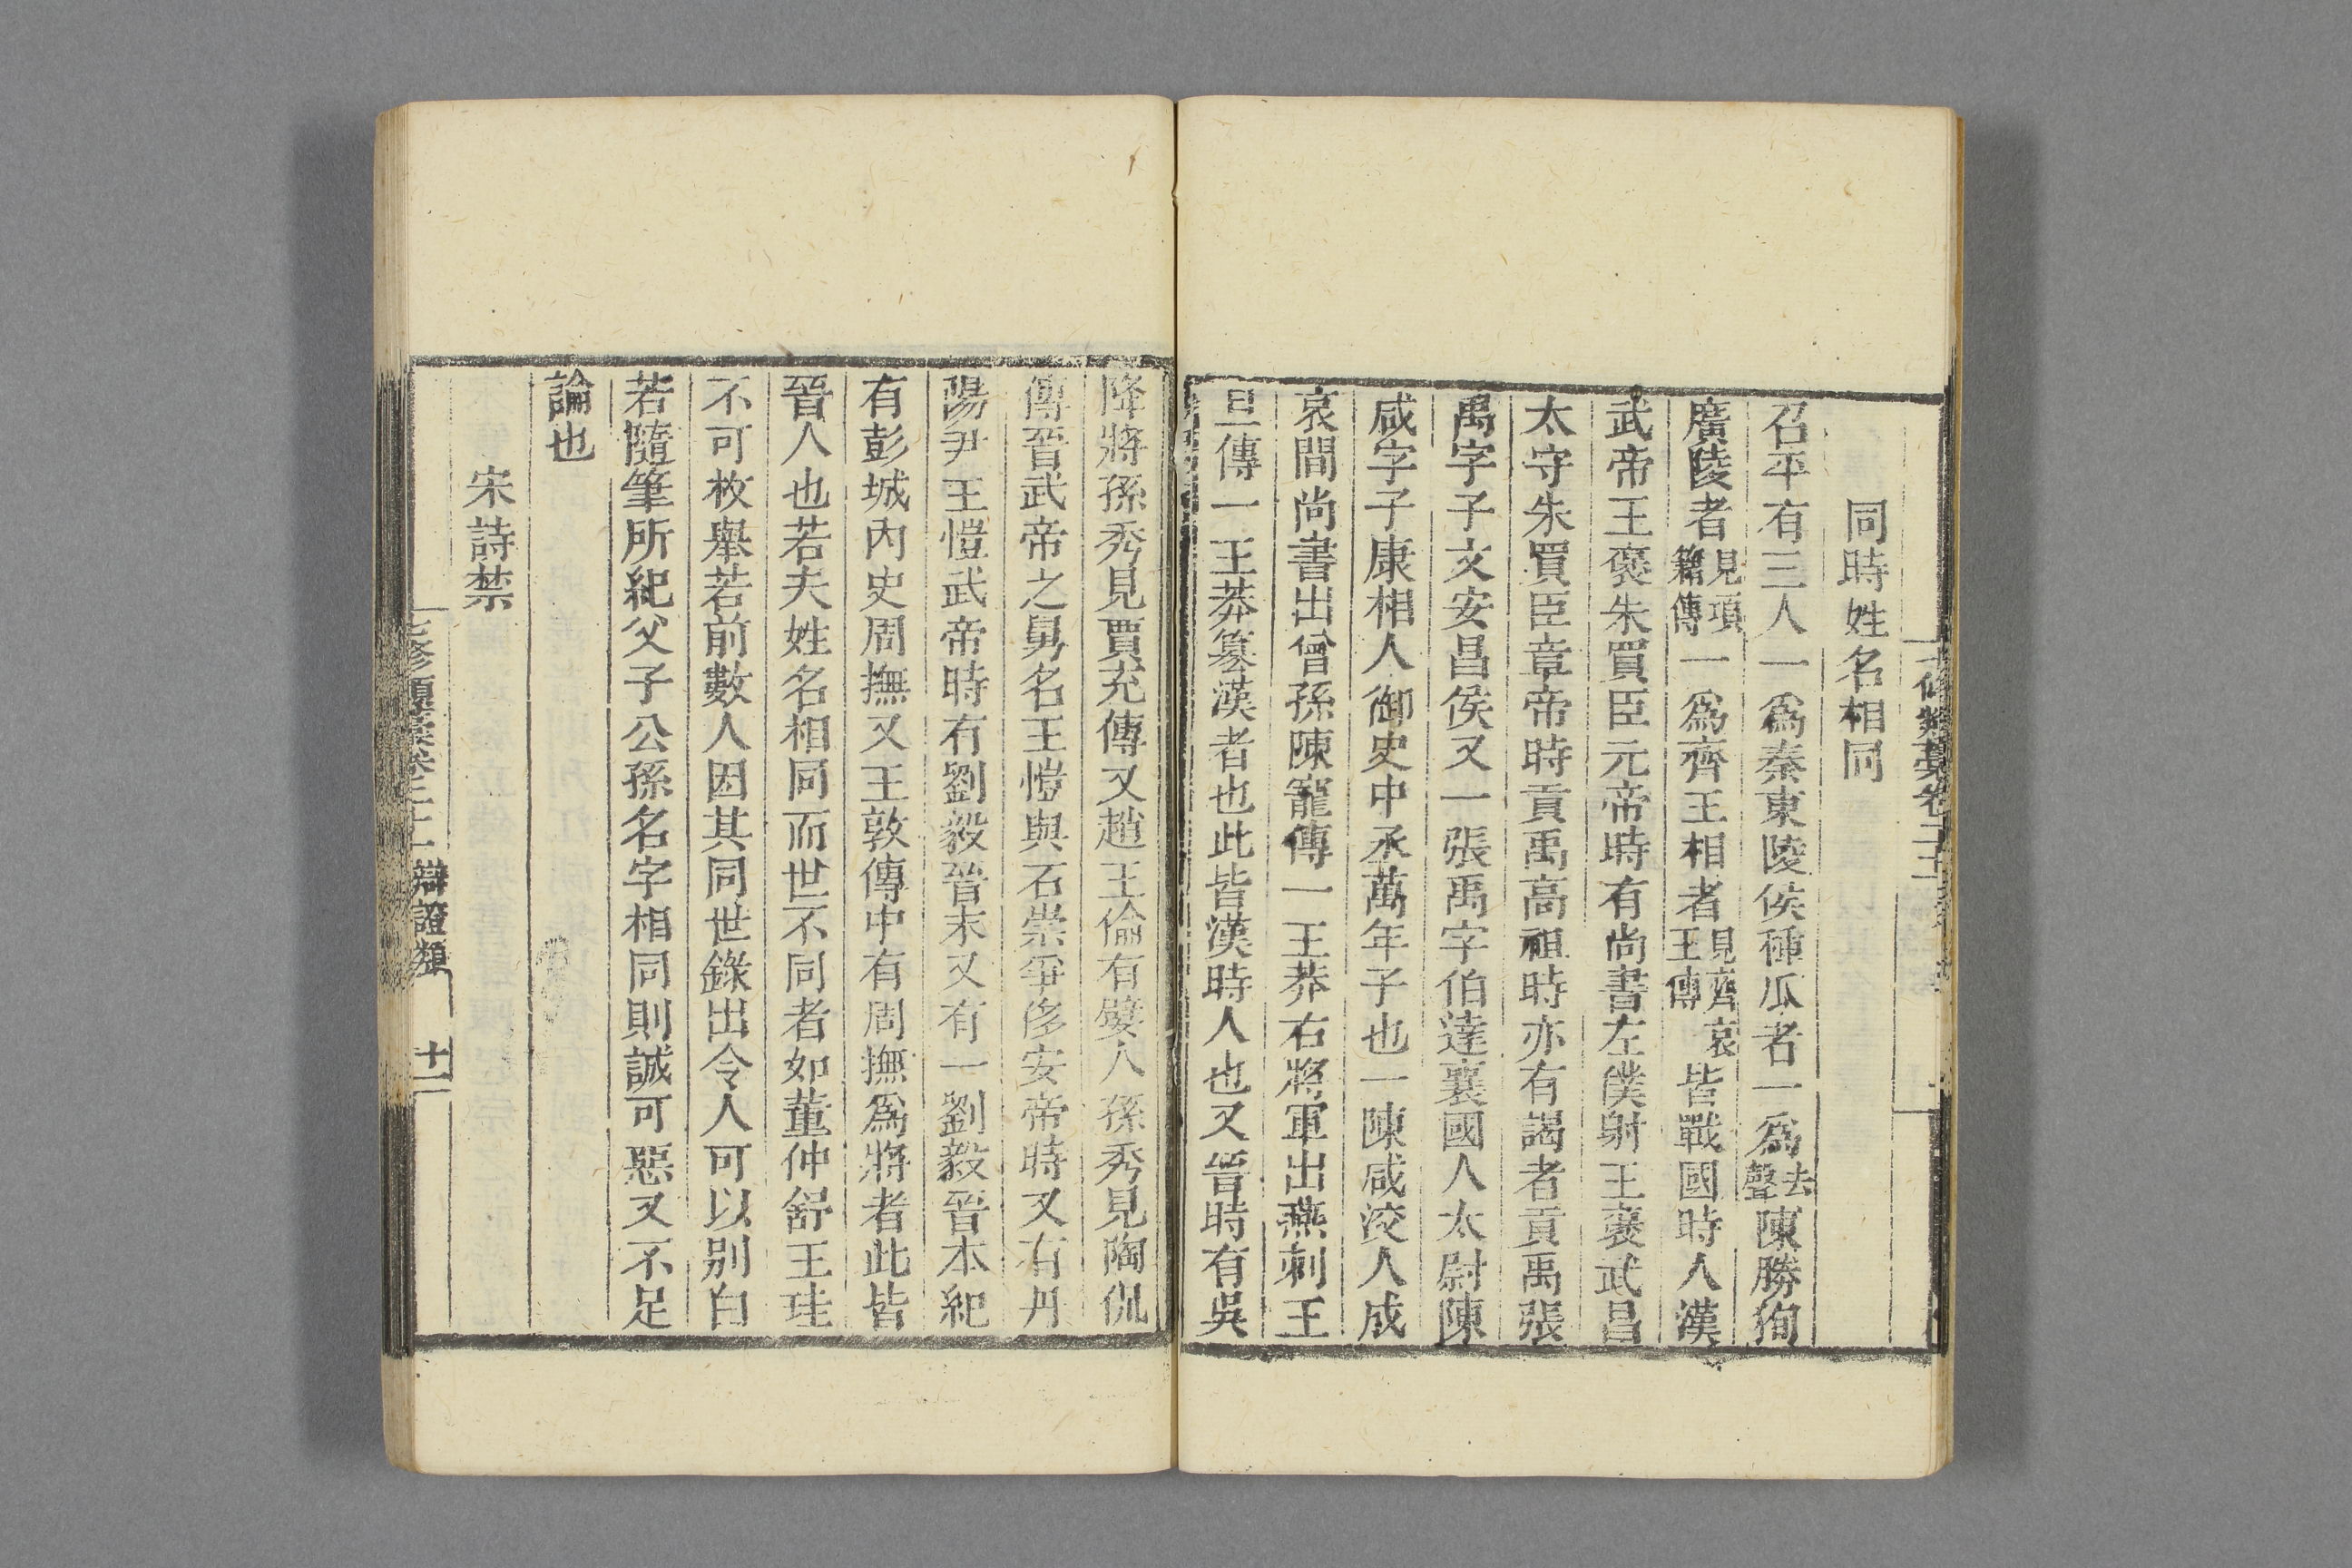 同時姓名相同
召平有三人一爲秦東陵侯種瓜者一爲去聲陳勝徇
廣陵者見項籍傳一爲齊王相者見齊哀王傳皆戰國時人漢
武帝王褒朱買臣元帝時有尚書左僕射王褒武昌
太守朱買臣章帝時貢禹高祖時亦有謁者貢禹張
禹字子文安昌侯又一張禹字伯達襄國人太尉陳
咸字子康相人御史中丞萬年子也一陳咸洨人成
哀間尚書出曾孫陳寵傳一王莽右將軍出燕刺王
旦傳一王莽篡漢者也此皆漢時人也又晉時有吳
降將孫秀見賈充傳又趙王倫有嬖人孫秀見陶侃
傳晉武帝之舅名王愷與石崇爭侈安帝時又有丹
陽尹王愷武帝時有劉毅晉末又有一劉毅晉本紀
有彭城內史周撫又王敦傳中有周撫爲將者此皆
晉人也若夫姓名相同而世不同者如董仲舒王珪
不可枚舉若前數人因其同世錄出令人可以別白
若隨筆所紀父子公孫名字相同則誠可惡又不足
論也
宋詩禁
七修類藁卷二十 辯證類 十二